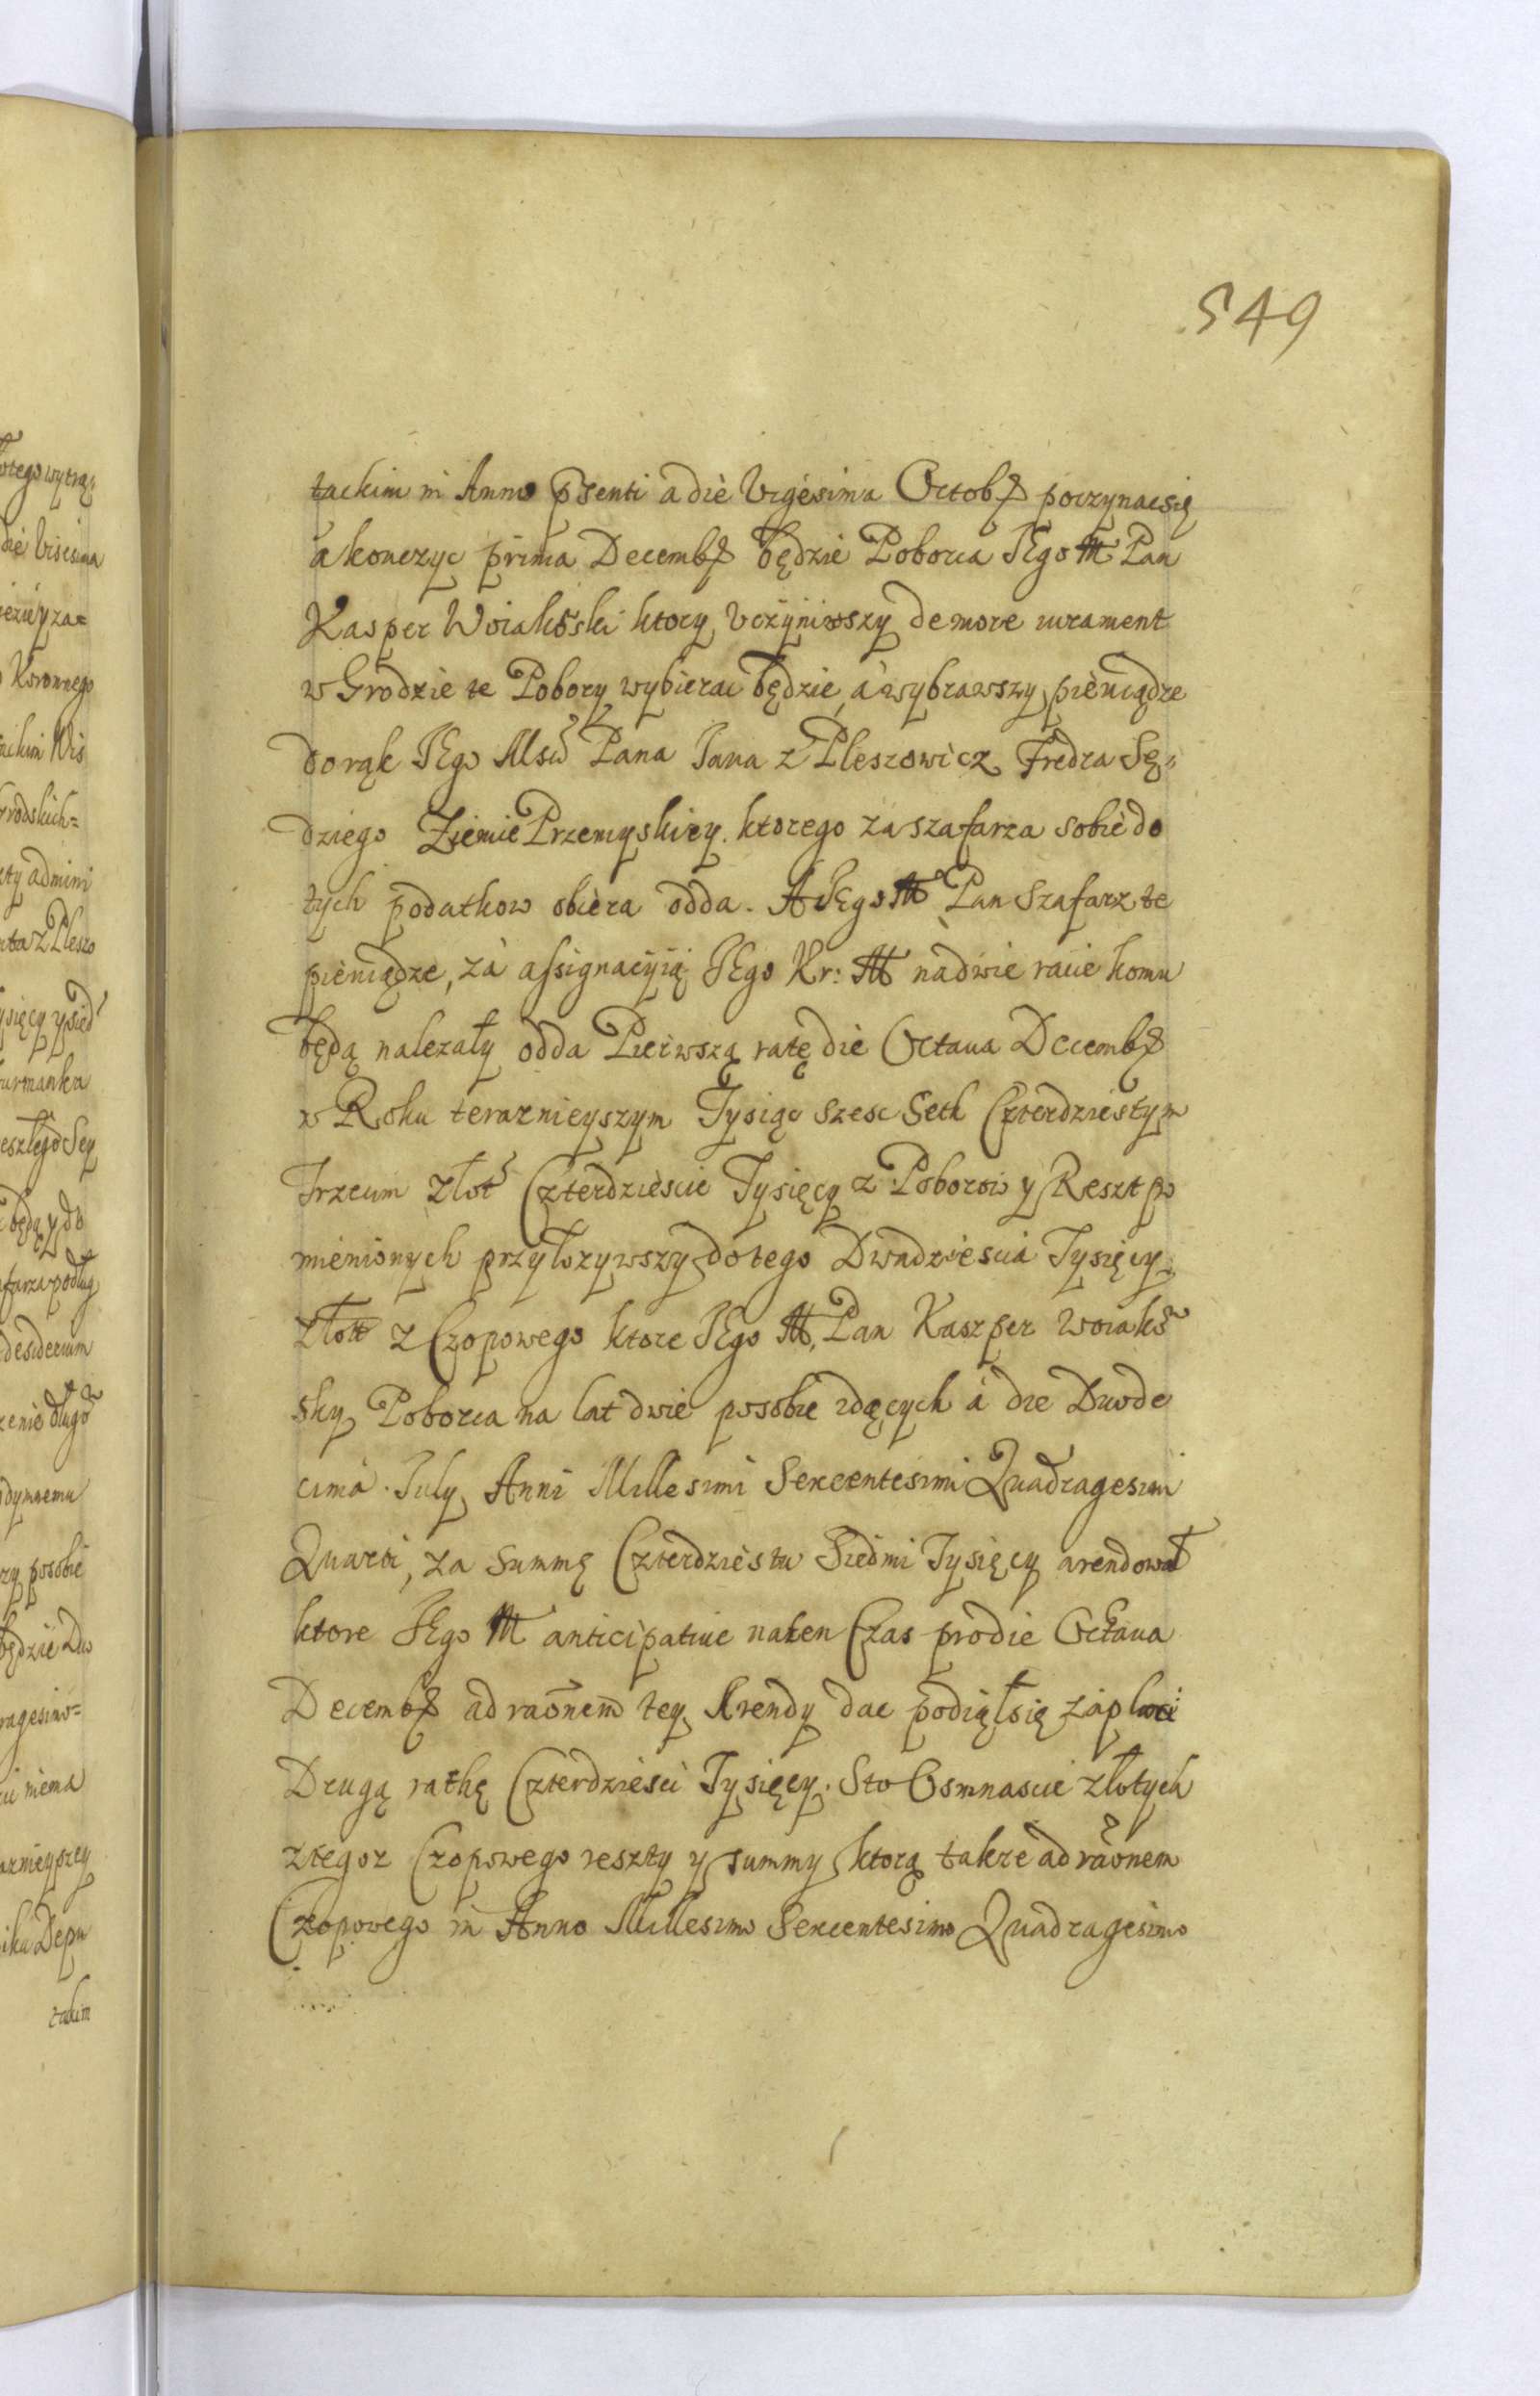 549
tackim in Anno pñsenti a die Vigesima Octobr poczynac się
a konczyc prima Decembr będzie Poborca JEgo M Pan
Kasper Woiakoski ktory vczyniwszy de more iurament
w Grodzie te Pobory wybierac będzie, a wybrawszy pieniądze
do rąk JEgo Msci Pana Jana z Pleszowicz Fredra Sę=
dziego Ziemie Przemyskiey. ktorego za szafarza sobie do
tych podatkow obiera odda. A JEgo M Pan Szafarz te
pieniądze, za assignacyią JEgo Kr: M na dwie racie komu
będą nalezały odda Pierwszą ratę die Octaua Decembr
w Roku teraznieyszym Tysiąc szesc Seth Czterdziestym
Trzecim złot Czterdziescie Tysięcy z Poborow y Reszt po
mienionych przyłozywszy do tego Dwadziescia Tysięcy
złott z Czopowego ktore JEgo M, Pan Kaszper Woiako
sky Poborca na lat dwie posobie idących a die Duode
cima July Anni Millesimi Sexcentesimi Quadragesimi
Quarti, za summę Czterdziestu Siedmi Tysięcy arendował
ktore JEgo M anticipatiue na ten Czas pro die Octaua
Decembr ad raõnem tey Arendy dac podiął się zapłaci
Drugą rathę Czterdziesci Tysięcy. Sto Osmnascie złotych
z tegoz Czopowego reszty y summy ktorą takze ad raõnem
Czopowego in Anno Millesimo Sexcentesimo Quadragesimo